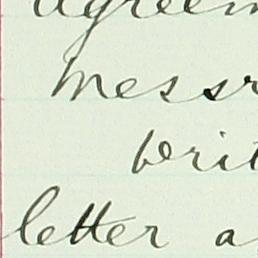 agreem
Messr
writ
letter a